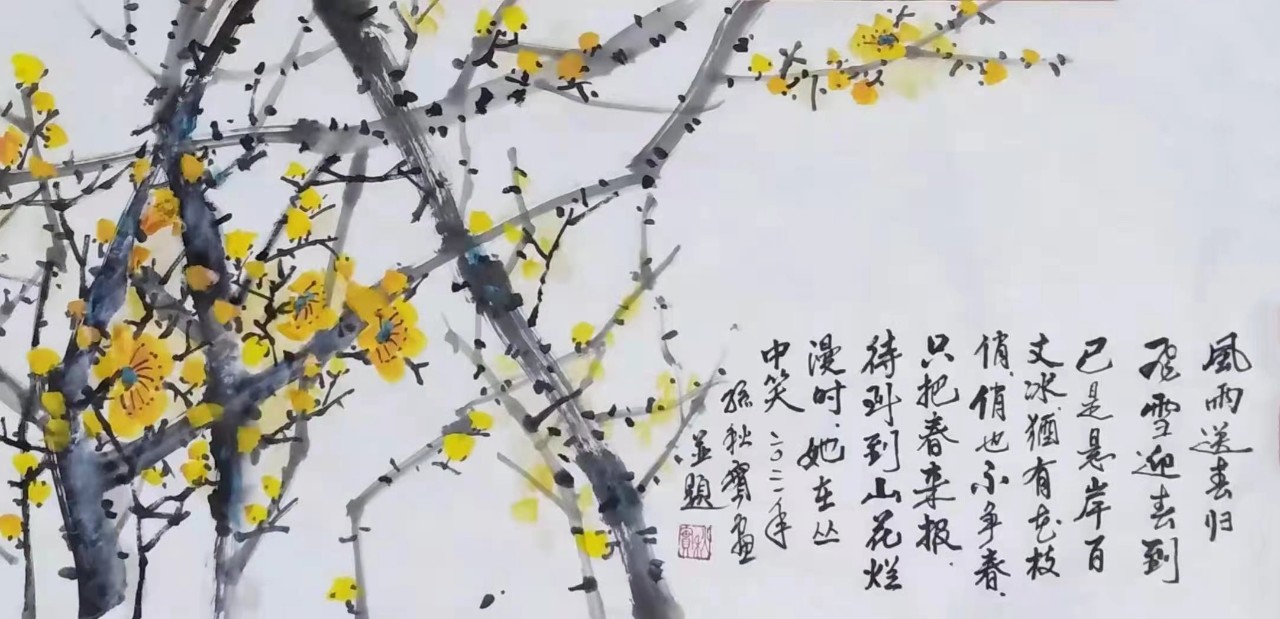 風雨送春归
飛雪迎春到
已是悬岸百
丈冰猶有花枝
俏俏也不争春
只把春来报
待到到山花烂
漫时她在丛
中笑 二〇二二年
孫秋寶画
並題